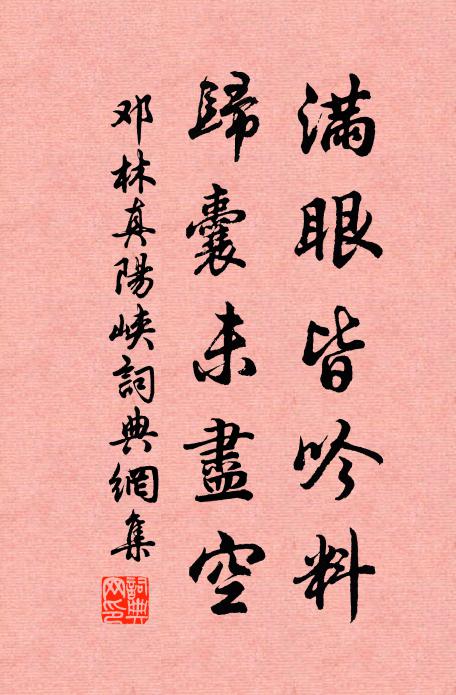 滿眼皆吟料
歸囊未盡空
邓林真陽峽詞典網集
詞典网印